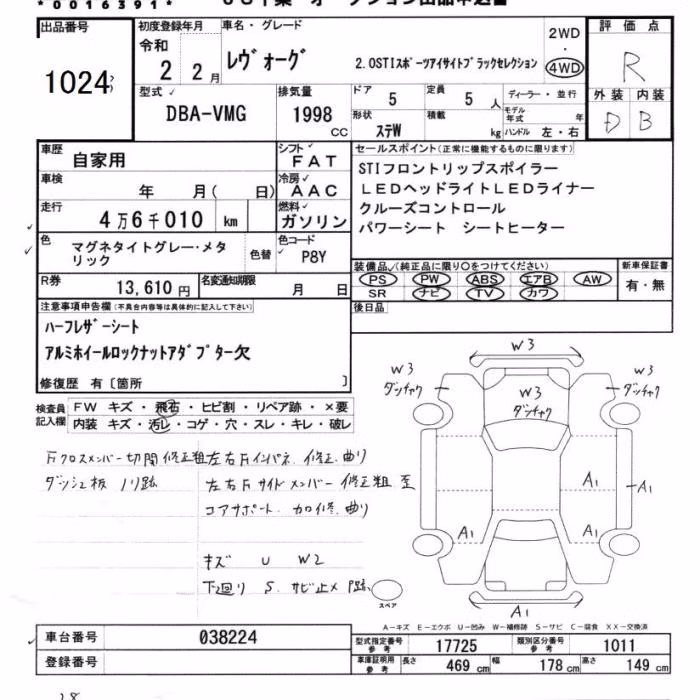 *0016391*
出品番号
1024
初度登録年月
令和
2 2月
車名・グレード
ﾚｳﾞｫｰｸﾞ
2.0STIｽﾎﾟｰﾂｱｲｻｲﾄﾌﾞﾗｯｸｾﾚｸｼｮﾝ
2WD
・
4WD
評価点
R
外装 内装
D B
型式
DBA-VMG
排気量
1998
CC
ドア
5
定員
5 人
ディーラー・並行
形状
ｽﾃW
積載
kg
モデル年式 年
ハンドル 左・右
車歴
自家用
シフト
FAT
車検
年 月( 日)
冷房
AAC
走行
4万6千010 km
燃料
ガソリン
色
マグネタイトグレー・メタリック
色替
色コード
P8Y
R券
13,610円
名変通知期限
月 日
セールスポイント(正常に機能するものに限ります)
STIフロントリップスポイラー
LEDヘッドライトLEDライナー
クルーズコントロール
パワーシート シートヒーター
装備品(純正品に限り○をつけてください)
PS PW ABS エアB AW
SR ナビ TV カワ
新車保証書
有・無
後日品
注意事項申告欄(不具合内容等は具体的に記入して下さい)
ﾊｰﾌﾚｻﾞｰｼｰﾄ
ｱﾙﾐﾎｲｰﾙﾛｯｸﾅｯﾄｱﾀﾞﾌﾟﾀｰ欠
修復歴 有〔箇所 〕
検査員記入欄
FW キズ・飛石・ヒビ割・リペア跡・×要
内装 キズ・汚レ・コゲ・穴・スレ・キレ・破レ
Fクロスメンバー切開修正粗
左右Fインパネ 修正.曲り
ダッシュ板 ノリ跡
左右Fサイドメンバー 修正粗 歪
コアサポート カロ修.曲り
キズ U W2
下廻り S サビ止メ跡
W3
W3
ダンチャク
W3
ダンチャク
W3
ダンチャク
A1
A1
A1
A1
A1
スペア
A－キズ E－エクボ U－凹み W－補修跡 S－サビ C－腐食 XX－交換済
車台番号
038224
登録番号
型式指定番号
参考
17725
類別区分番号
参考
1011
車庫証明用
参考
長さ 469 cm
幅 178 cm
高さ 149 cm